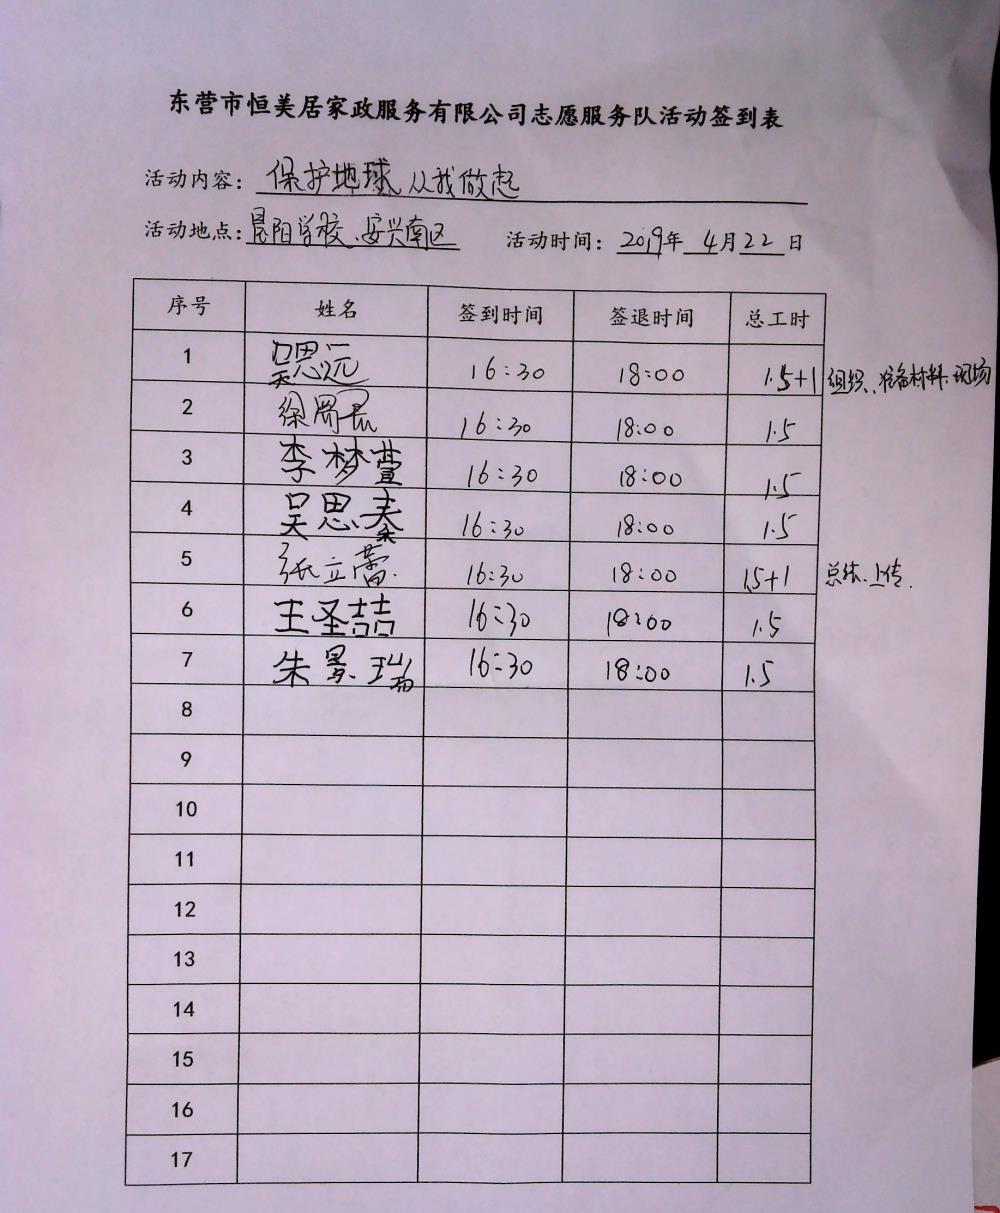 东营市恒美居家政服务有限公司志愿服务队活动签到表
活动内容: 保护地球 从我做起
活动地点: 晨阳学校、安兴南区 活动时间: 2019年 4月22日
序号 姓名 签到时间 签退时间 总工时
1 吴思远 16:30 18:00 1.5+1 组织、准备材料、现场
2 徐 16:30 18:00 1.5
3 李梦萱 16:30 18:00 1.5
4 吴思 16:30 18:00 1.5
5 张立蕾 16:30 18:00 1.5+1 总结、上传.
6 王圣喆 16:30 18:00 1.5
7 朱景瑞 16:30 18:00 1.5
8
9
10
11
12
13
14
15
16
17